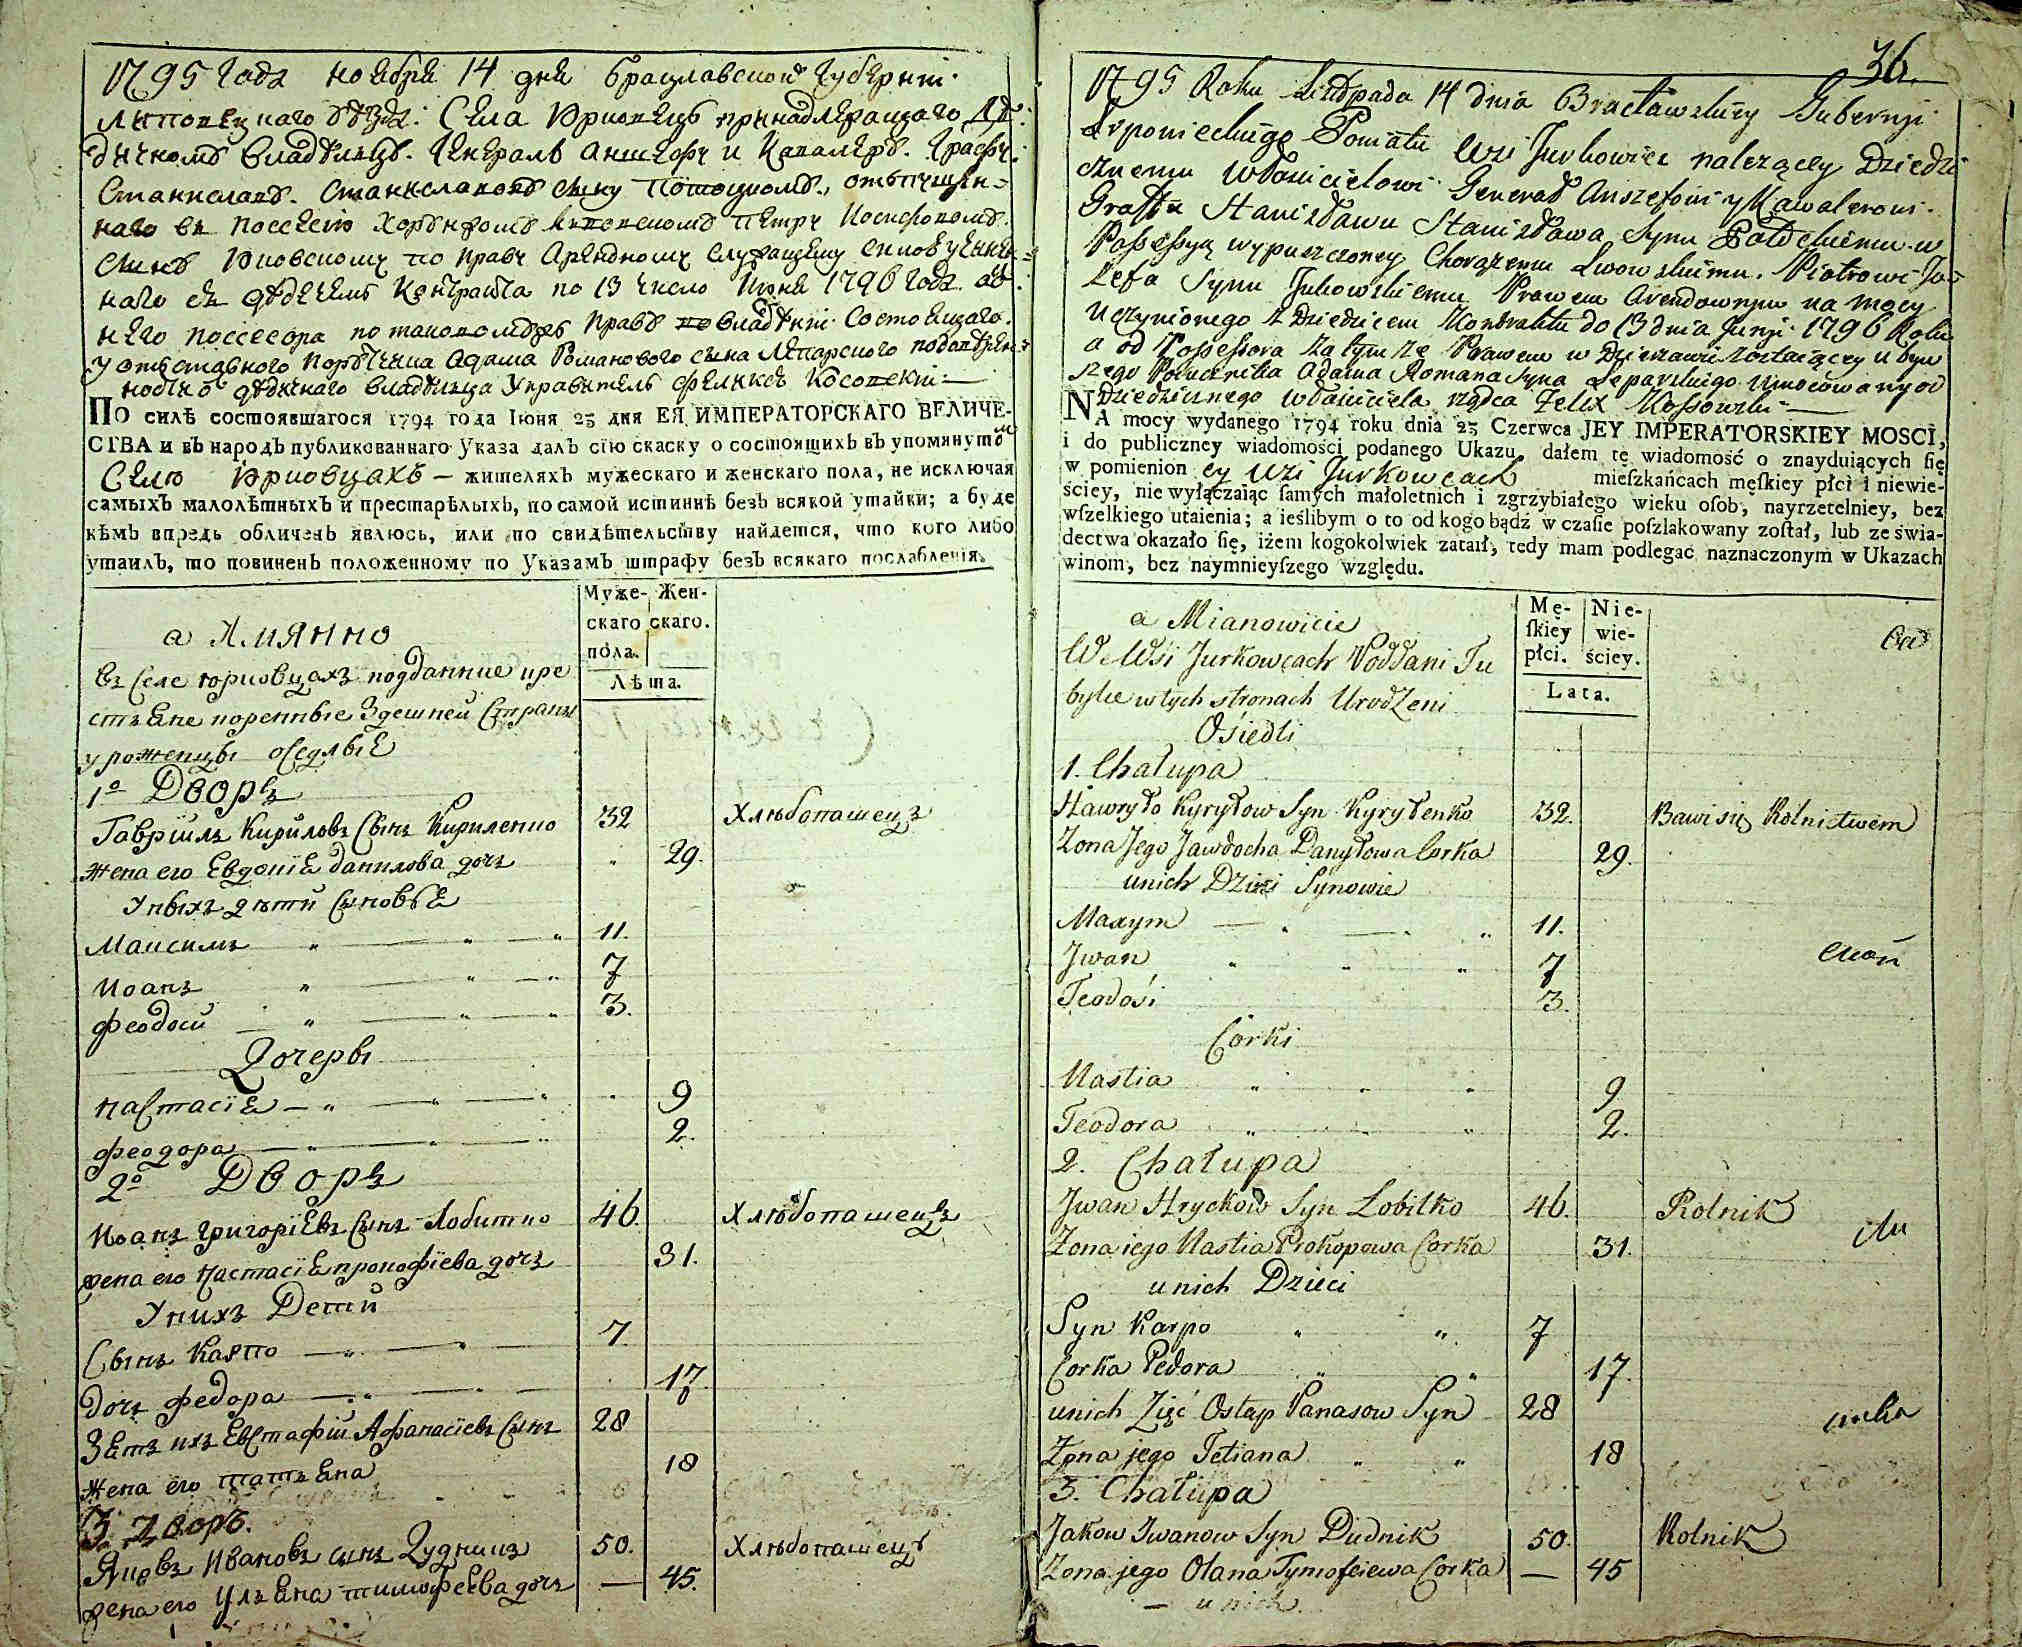 1795 года ноября 14 дня Брацлавской губернии.
Липовецкаго уѣзда: Села Юрковецъ принадлежащаго
дичному владѣльцу. Генералъ аншефу и Кавалеру. Графу.
Станиславу. Станиславову сыну Потоцкому., отъпущен-
наго въ поссесію Хорунжому Львовскому Петру Иосифовому.
сыну Юковскому по праву Арендному служащему силою учинен-
наго съ дѣдичемъ Контракта по 13 число Июня 1796 года. отъ
него поссесора по таковомуже праву во владѣніи. Состоящаго.
у отставного Порутчика Адама Романового сына Лепарского
дѣдичнаго владѣльца Управитель Феликсъ Косовскій
ПО силѣ состоявшагося 1794 года Iюня 23 дня ЕЯ ИМПЕРАТОРСКАГО ВЕЛИЧЕ-
СТВА и въ народъ публикованнаго Указа далъ сію скаску о состоящихъ въ упомянутомъ
Селѣ Юрковцахъ — жителяхъ мужескаго и женскаго пола, не исключая
самыхъ малолѣтныхъ и престарѣлыхъ, по самой истиннѣ безъ всякой утайки; а буде
кѣмъ впредь обличенъ явлюсь, или по свидѣтельству найдется, что кого либо
утаилъ, то повиненъ положенному по Указамъ штрафу безъ всякаго послабленія.
Муже- Жен-
скаго скаго.
пола.
Лѣта.
а Имянно
въ Селе Юрковцахъ подданние кре
стьяне коренные Здешней Страны
уроженцы оседлыя
1º Дворъ
Гавріилъ Кириловъ Сынъ Кириленко 32 Хлѣбопашецъ
жена его Евдокія данилова дочъ 29.
У ныхъ дѣти Сыновья
Максимъ 11.
Иоанъ 7
Феодосій 3.
Дочеры
Настасія 9
Феодора 2.
2º Дворъ
Иоанъ Григоріевъ Сынъ Лобитко 46. Хлѣбопашецъ
жена его Настасія прокофіева дочъ 31.
У нихъ Дети
Сынъ Карпо 7.
дочъ федора 17.
Зять ихъ Евстафій Афанасіевъ Сынъ 28
жена его татьяна 18
3. Дворъ.
Яковъ Ивановъ сынъ Дудникъ 50. Хлѣбопашецъ
жена его Ульяна тимофеева дочъ — 45.
36.
1795 Roku Listopada 14 dnia Bracławskiey Gubernji
Lipowieckiego Powiatu Wsi Jurkowiec nalezącey Dziedzi
cznemu Własicielowi Generał Anszefowi y Kawalerowi.
Graffu Stanisławu Stanisława Synu Potockiemu w
Possessyą wypuszczoney Chorążemu Lwowskiemu. Piotrowi Jo
zefa Synu Jukowskiemu Prawem arendownym na mocy
uczynionego z Dziedzicem Kontraktu do 13 dnia Junji 1796 Roku
a od Possessora za tym ze Prawem w Dzierzawie zostaiącey u byw
szego Porucznika Adama Romana syna Leparskiego Umocowany od
Dziedzicznego Własiciela rządca Felix Kossowski
NA mocy wydanego 1794 roku dnia 23 Czerwca JEY IMPERATORSKIEY MOSCI,
i do publiczney wiadomości podanego Ukazu dałem tę wiadomość o znayduiących się
w pomienion ey Wsi Jurkowcach mieſzkańcach męſkiey płci i niewie-
ściey, nie wyłączaiąc ſamych małoletnich i zgrzybiałego wieku oſob, nayrzetelniey, bez
wſzelkiego utaienia; a ieślibym o to od kogo bądź w czaſie poſzlakowany zoſtał, lub ze świa-
dectwa okazało ſię, iżem kogokolwiek zataił, tedy mam podlegać naznaczonym w Ukazach
winom, bez naymnieyſzego względu.
Mę- Nie-
ſkiey wie-
płci. ściey.
Lata.
a Mianowicie
W Wsi Jurkowcach Poddani Tu
bylce w tych stronach Urodzeni
Osiedli
1. Chałupa
Hawryło Kyryłow Syn Kyryłenko 32. Bawi się Rolnictwem
Zona Jego Jawdocha Danyłowa Corka 29.
u nich Dzieci Synowie
Maxym 11.
Jwan 7
Teodosi 3.
Corki
Nastia 9
Teodora 2.
2. Chałupa
Jwan Hryckow Syn Lobitko 46. Rolnik
Zona iego Nastia Prokopowa Corka 31.
u nich Dzieci
Syn Karpo 7
Corka Fedora 17.
u nich Zięć Ostap Panasow Syn 28
Zona jego Tetiana 18
3. Chałupa
Jakow Jwanow Syn Dudnik 50. Rolnik
Zona jego Olana Tymofeiewa Corka — 45
— u nich